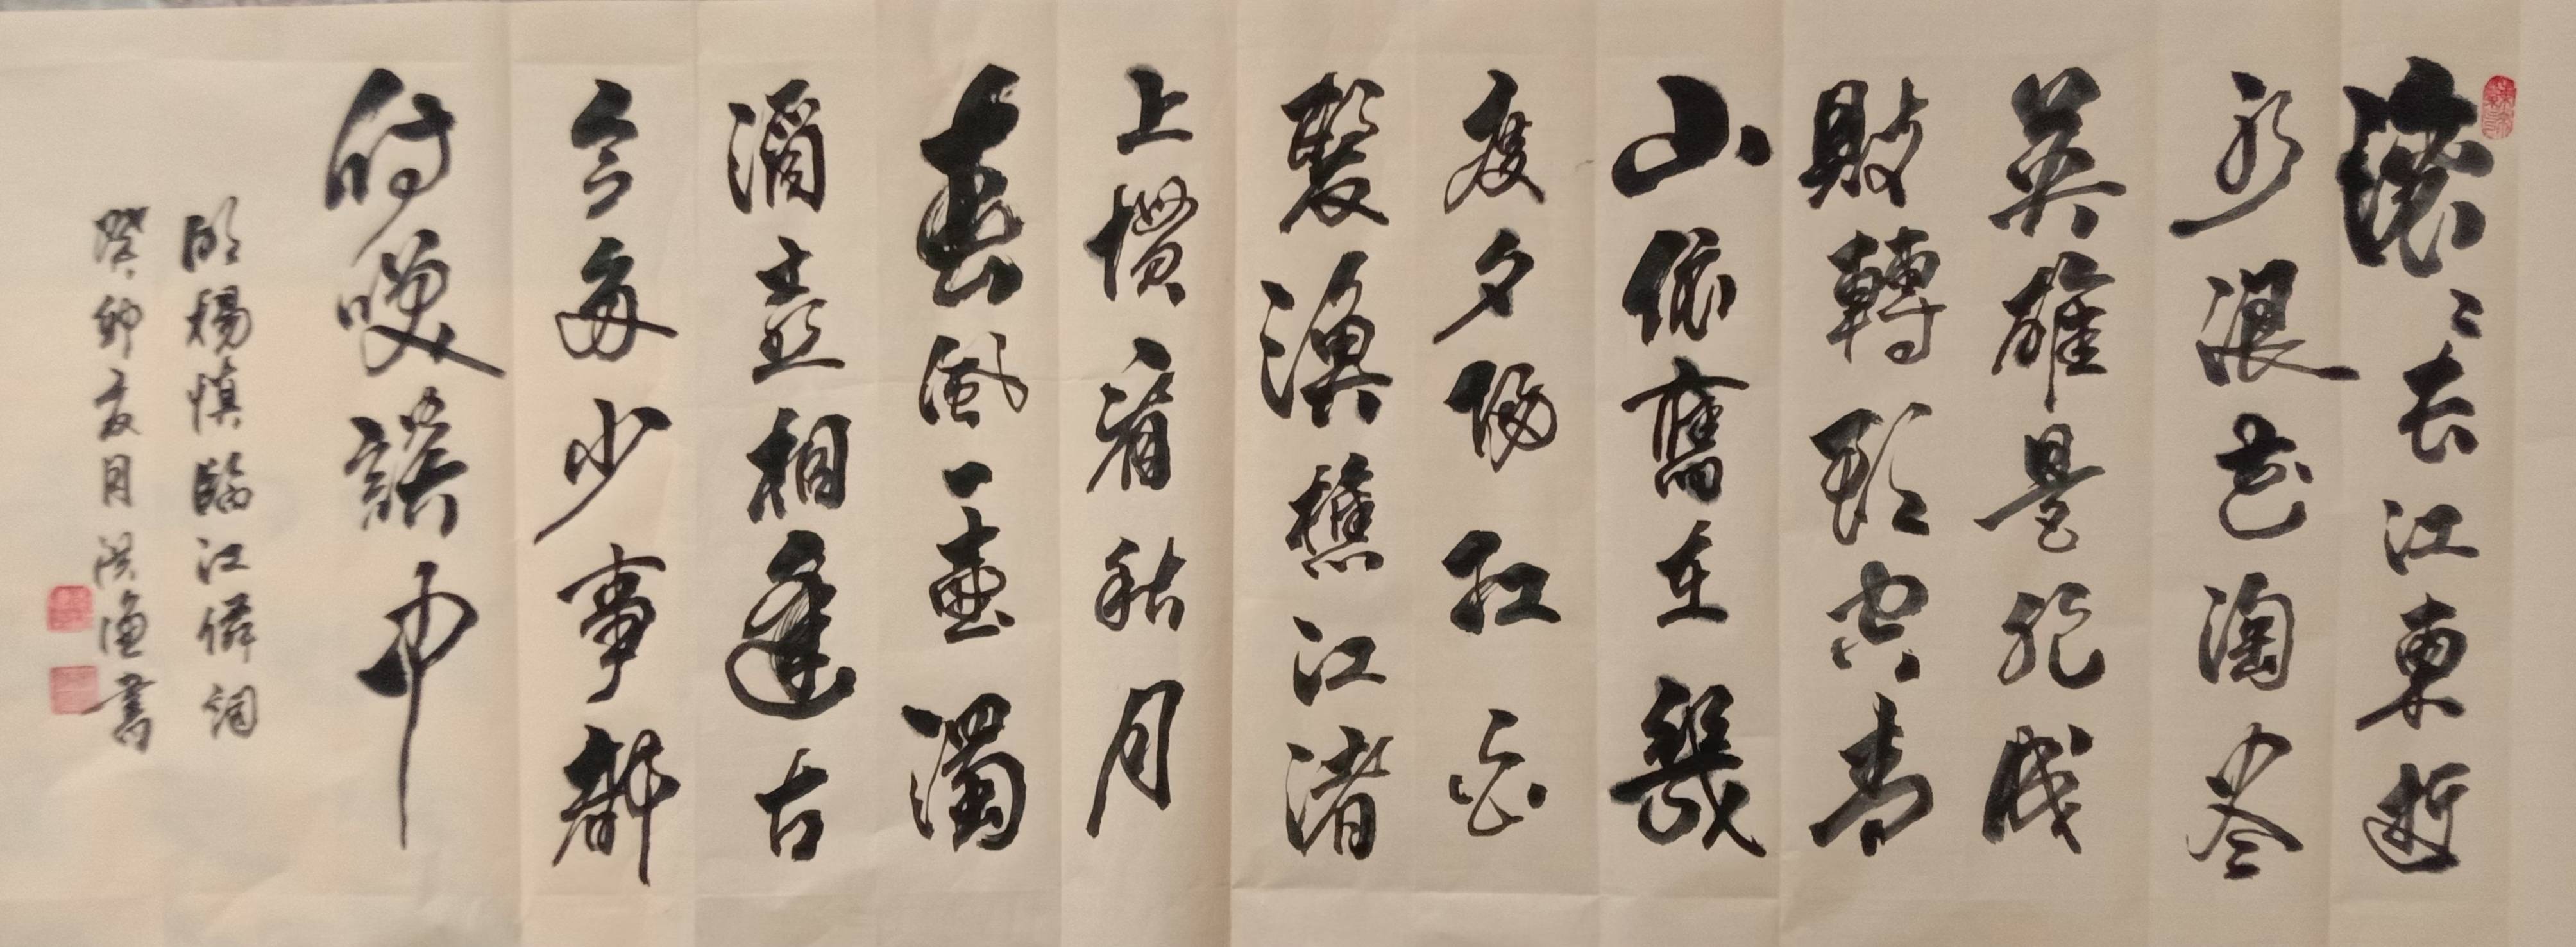 滚〻長江東逝
水浪花淘盡
英雄是非成
敗轉頭空青
山依舊在幾
度夕陽紅白
髮漁樵江渚
上慣看秋月
春風一壺濁
酒喜相逢古
今多少事都
付咲談中
明楊慎臨江僊詞
癸卯夏月洪漁書